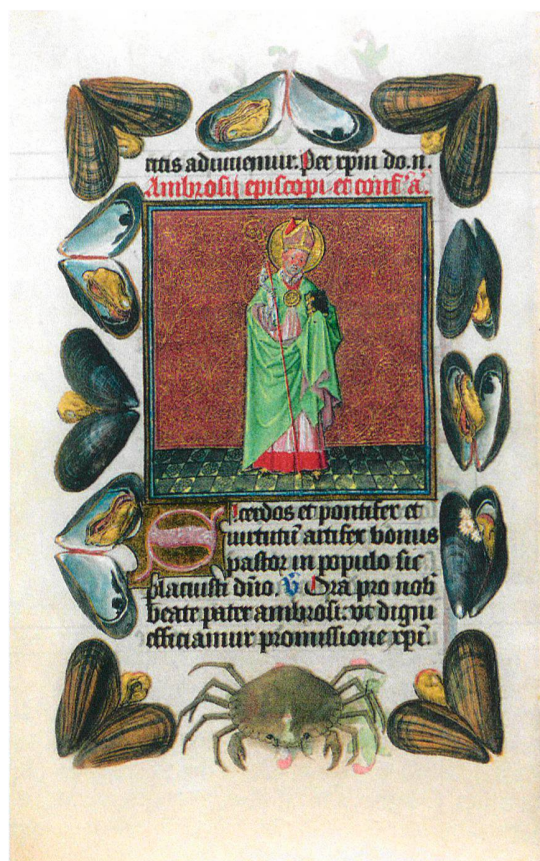 ritis adiuuemur. Per xpm do. n.
Ambrosij episcopi et conf. a.
Sacerdos et pontifex et
uirtutum artifex bonus
pastor in populo sic
placuisti dño. V Ora pro nob
beate pater ambrosi: ut digni
efficiamur promissione xpi.